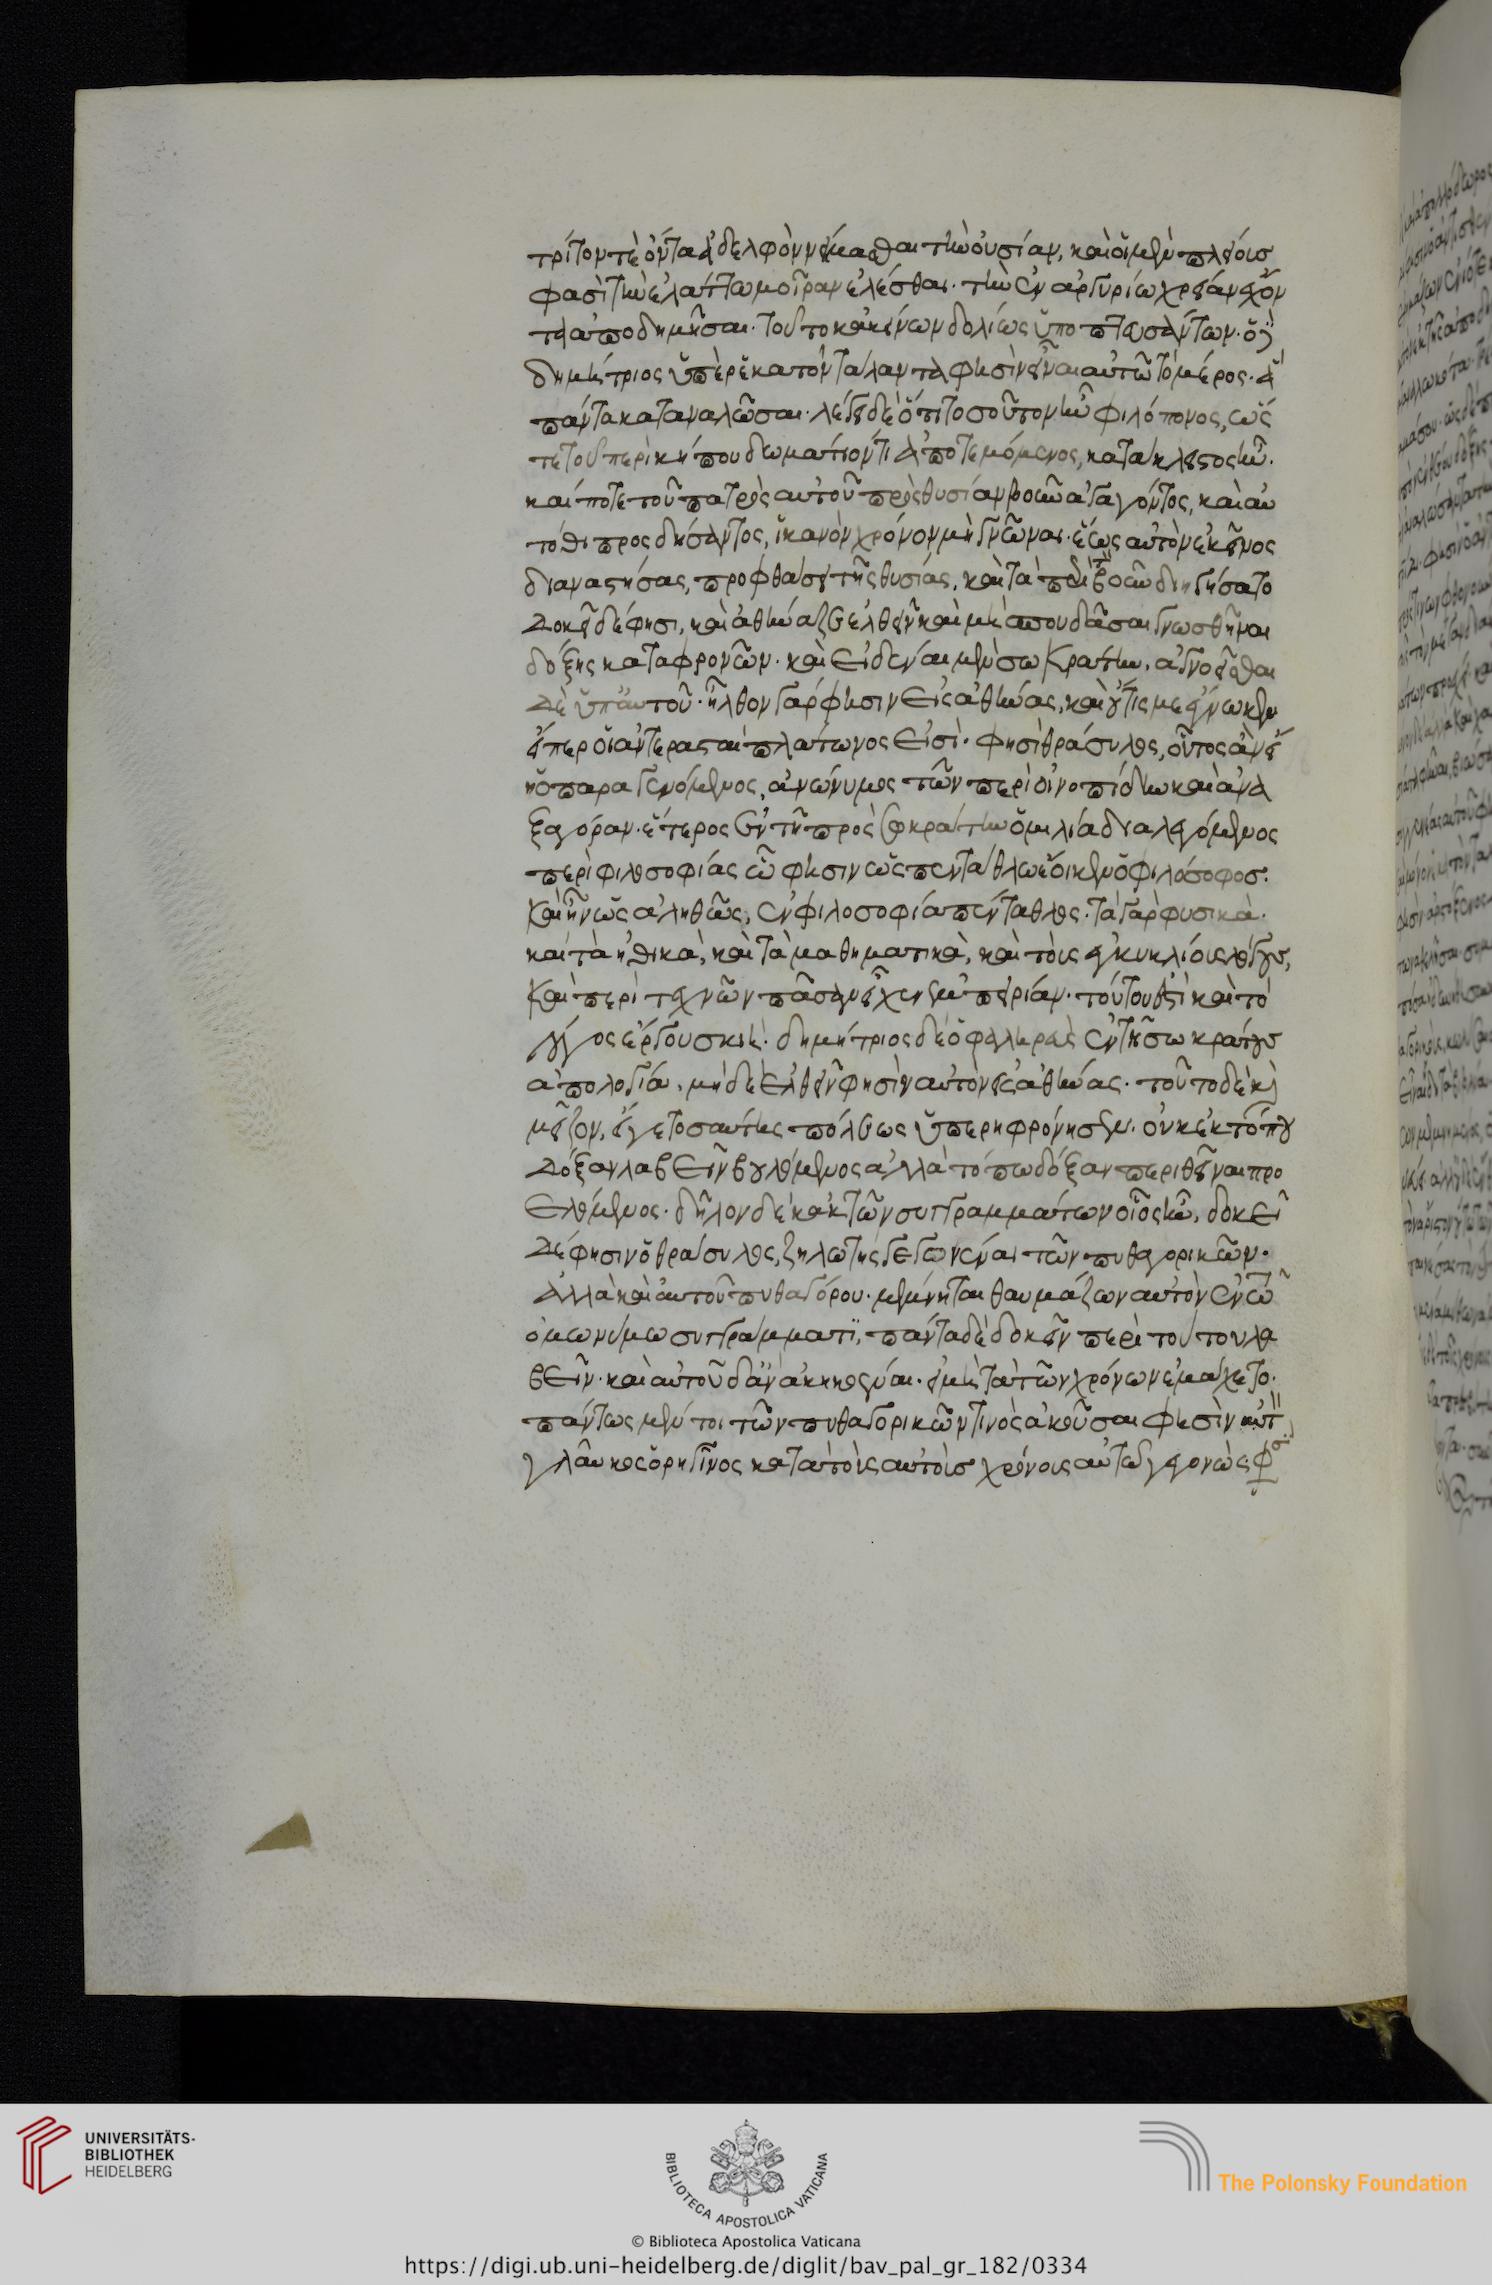 τρίτον τὲ ὄντα ἀδελφὸν νείμασθαι τὴν οὐσίαν, καὶ οἱ μὲν πλείους
φασὶ τὴν ἐλάττω μοῖραν ἑλέσθαι. τὴν ἐν ἀργυρίω χρείαν ἔχον
τα ἀποδημῆσαι. τοῦτο κἀκείνων δολίως ὑποπτευσάντων. ὁ δὲ
δημήτριος ὑπὲρ ἑκατὸν τάλαντα φησὶν εἶναι αὐτῶ τὸ μέρος. ἃ
πάντα καταναλῶσαι. λέγει δὲ ὅτι τοσοῦτον ἦν φιλόπονος, ὥς
τε τοῦ περὶ κήπου δωμάτιόν τι ἀποτεμόμενος, κατάκλειστος ἦν.
καί ποτε τοῦ πατρὸς αὐτοῦ πρὸς θυσίαν βοῦν ἀγαγόντος, καὶ αὐ
τόθι προσδήσαντος, ἱκανὸν χρόνον μὴ γνῶναι. ἕως αὐτὸν ἐκεῖνος
διαναστήσας, προφθάσει τῆς θυσίας, καὶ τὰ περὶ τὸν βοῦν διηγήσατο
δοκεῖ δέ φησι, καὶ ἀθήναζε ἐλθεῖν καὶ μὴ σπουδᾶσαι γνωσθῆναι
δόξης καταφρονῶν. καὶ εἰδέναι μὲν σωκράτην, ἀγνοεῖσθαι
δὲ ὑπ' αὐτοῦ. ἦλθον γάρ φησιν εἰς ἀθήνας, καὶ οὔτις με ἔγνωκεν
εἴπερ οἱ ἀντερασταὶ πλάτωνος εἰσὶ. φησὶ θράσυλος, οὗτος ἂν εἴ
η ὁ παραγενόμενος, ἀνώνυμος τῶν περὶ οἰνοπίδην καὶ ἀνα
ξαγόραν. ἕτερος ἐν τῆ πρὸς σωκράτην ὁμιλία διαλεγόμενος
περὶ φιλοσοφίας ὧ φησιν ὡς πεντάθλω ἔοικεν ὁ φιλόσοφος.
καὶ ἦν ὡς ἀληθῶς, ἐν φιλοσοφία πένταθλος. τὰ γὰρ φυσικὰ.
καὶ τὰ ἠθικὰ, καὶ τὰ μαθηματικὰ, καὶ τοὺς ἐγκυκλίους λόγους,
καὶ περὶ τεχνῶν πᾶσαν εἶχεν ἐμπειρίαν. τούτου ἐστὶ καὶ τὸ
λόγος ἔργου σκιή. δημήτριος δὲ ὁ φαληρεὺς ἐν τῆ σωκράτους
ἀπολογία. μὴ δὲ ἐλθεῖν φησὶν αὐτὸν εἰς ἀθήνας. τοῦτο δὲ καὶ
μεῖζον, εἴγε τοσαύτης πόλεως ὑπερηφρόνησεν. οὐκ ἐκ τόπου
δόξαν λαβεῖν βουλόμενος ἀλλὰ τόπω δόξαν περιθεῖναι προ
ελόμενος. δῆλον δὲ κἀκ τῶν συγγραμμάτων οἷος ἦν. δοκεῖ
δέ φησιν ὁ θράσυλος, ζηλωτὴς γεγονέναι τῶν πυθαγορικῶν.
ἀλλὰ καὶ αὐτοῦ πυθαγόρου. μέμνηται θαυμάζων αὐτὸν ἐν τῶ
ὁμωνύμω συγγράμματι, πάντα δὲ δοκεῖν περὶ τούτου λα
βεῖν. καὶ αὐτοῦ δ' ἂν ἀκηκοέναι. εἰ μὴ τὰ τῶν χρόνων ἐμάχετο.
πάντως μέν τοι τῶν πυθαγορικῶν τινὸς ἀκοῦσαι φησὶν αὐτὸν
γλαῦκος ὁ ρηγῖνος κατὰ τοὺς αὐτοὺς χρόνους αὐτῶ γεγονώς. φησὶ
UNIVERSITÄTS-
BIBLIOTHEK
HEIDELBERG
BIBLIOTECA APOSTOLICA VATICANA
The Polonsky Foundation
© Biblioteca Apostolica Vaticana
https://digi.ub.uni-heidelberg.de/diglit/bav_pal_gr_182/0334